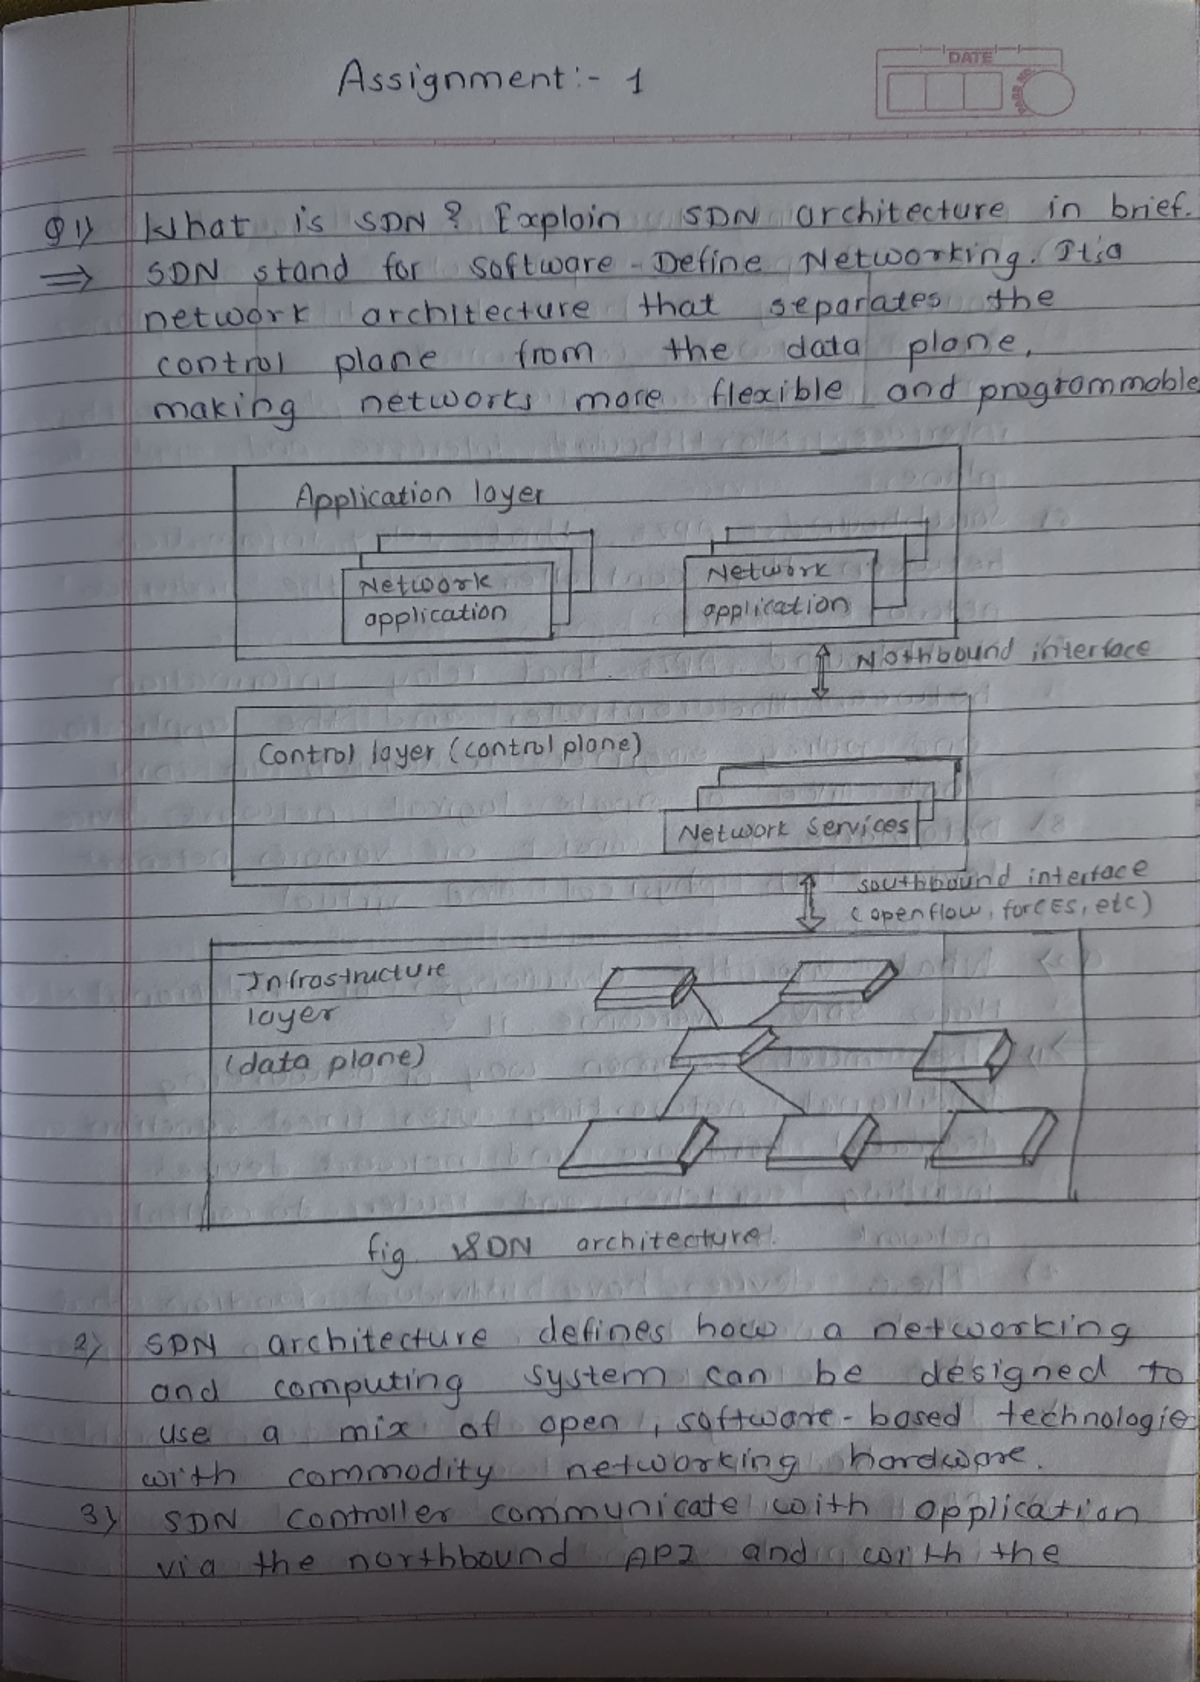 Assignment:- 1
DATE
PAGE NO.
Q1) What is SDN? Explain SDN architecture in brief.
⇒ SDN stand for Software-Define Networking. It is a
network architecture that separates the
control plane from the data plane,
making networks more flexible and programmable
Application layer
Network
application
Network
application
Nothbound interface
Control layer (control plane)
Network Services
southbound interface
(openflow, forCES, etc)
Infrastructure
layer
(data plane)
fig. SDN architecture.
2) SDN architecture defines how a networking
and computing system can be designed to
use a mix of open, software-based technologie
with commodity networking hardware.
3) SDN controller communicate with application
via the northbound API and with the